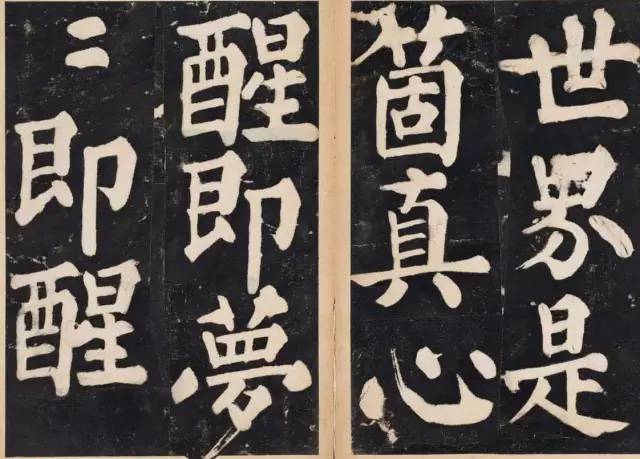 世界是
箇真心
醒即夢
〻即醒